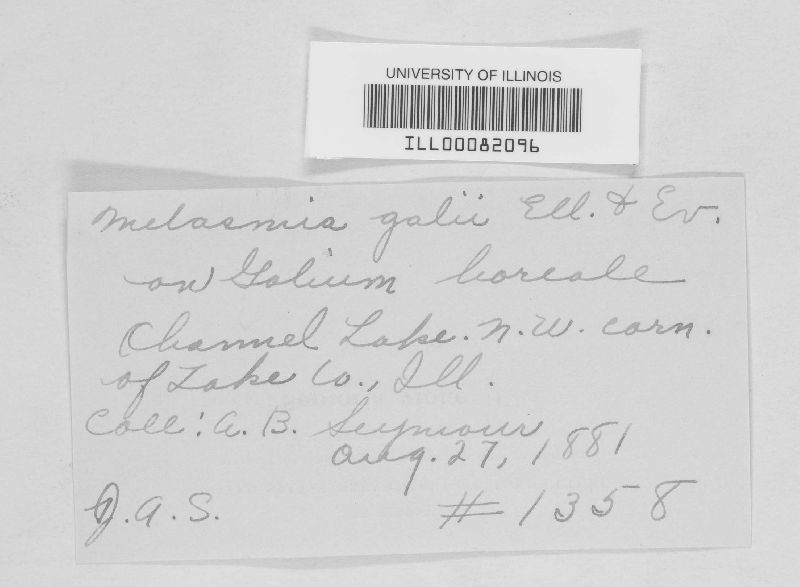 UNIVERSITY OF ILLINOIS
ILL00082096
Melasmia galii Ell. & Ev.
on Galium boreale
Channel Lake. N.W. corn.
of Lake Co., Ill.
Coll: A. B. Seymour
Aug. 27, 1881
J.A.S. #1358